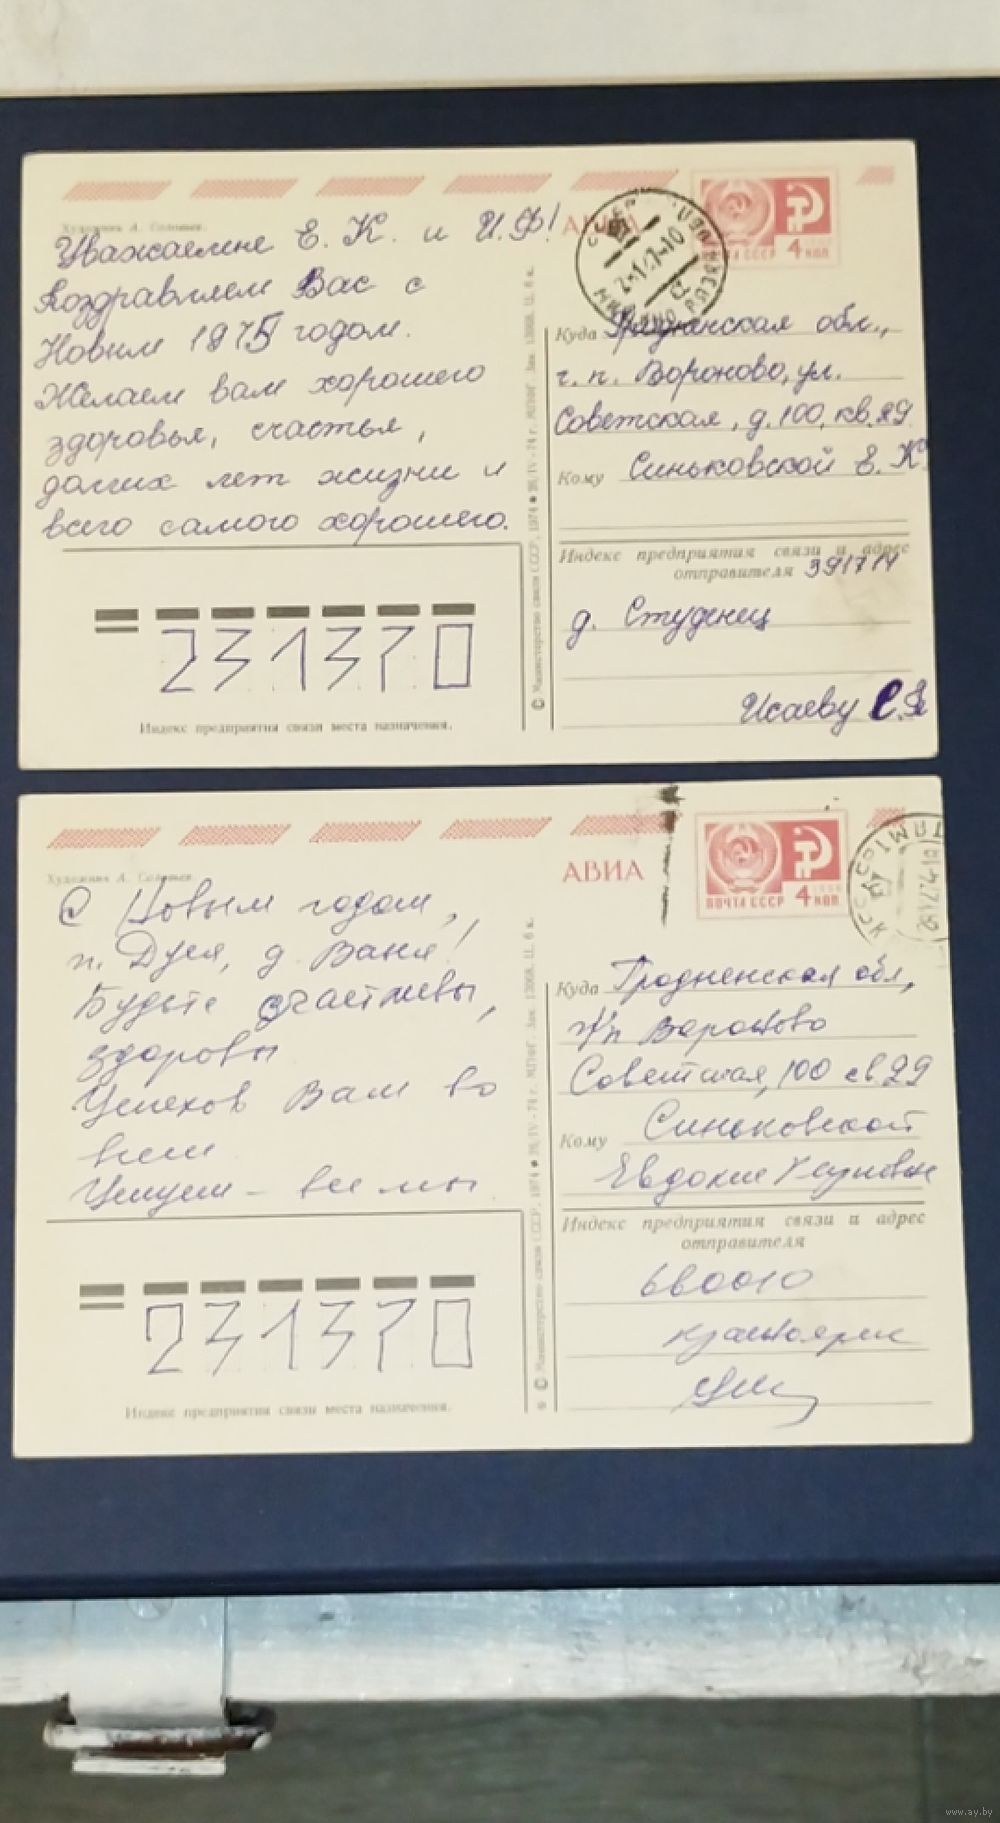 Художник А. Соловьев.
АВИА
ПОЧТА СССР 4 КОП
Уважаемые Е. К. и И. Ф!
Поздравляем Вас с
Новым 1975 годом.
Желаем вам хорошего
здоровья, счастья,
долгих лет жизни и
всего самого хорошего.
Куда Гродненская обл.,
г. п. Вороново, ул.
Советская, д. 100, кв. 29.
Кому Синьковской Е. К.
Индекс предприятия связи и адрес
отправителя 391714
д. Студенец
Исаеву
231370
Индекс предприятия связи места назначения.
© Министерство связи СССР, 1974
Художник А. Соловьев.
АВИА
ПОЧТА СССР 4 КОП
С Новым годом,
т. Дуся, д. Ваня!
Будьте счастливы,
здоровы
Успехов Вам во
всем
Целуем – все мы
Куда Гродненская обл,
г/п Вороново
Советская, 100 кв 29
Кому Синьковской
Евдокие
Индекс предприятия связи и адрес
отправителя
660010
Красноярск
231370
Индекс предприятия связи места назначения.
© Министерство связи СССР, 1974
www.ay.by